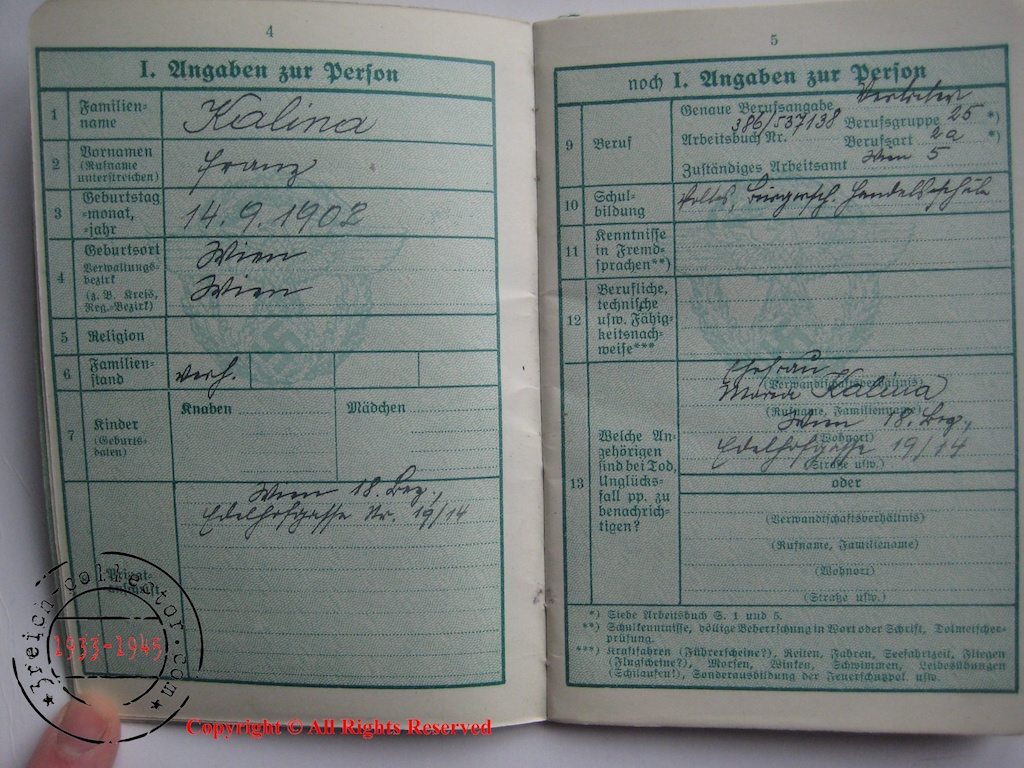 4
I. Angaben zur Person
1 Familien-
name
Kalina
2 Vornamen
(Rufname
unterstreichen)
Franz
3 Geburtstag
-monat,
-jahr
14.9.1902
4 Geburtsort
Verwaltungs-
bezirk
(z. B. Kreis,
Reg.-Bezirk)
Wien
Wien
5 Religion
6 Familien-
stand
verh.
7 Kinder
(Geburts-
daten)
Knaben
Mädchen
Privat-
anschrift
Wien 18. Bez.,
Edelhofgasse Nr. 19/14
5
noch I. Angaben zur Person
9 Beruf
Genaue Berufsangabe Vertreter
386/537138 Berufsgruppe 25 *)
Arbeitsbuch Nr. Berufsart 2a *)
Zuständiges Arbeitsamt Wien 5
10 Schul-
bildung
Volks, Bürgersch. Handelsschule
11 Kenntnisse
in Fremd-
sprachen**)
12 Berufliche,
technische
usw. Fähig-
keitsnach-
weise***
13 Welche An-
gehörigen
sind bei Tod,
Unglücks-
fall pp. zu
benachrich-
tigen?
Ehefrau
(Verwandtschaftsverhältnis)
Maria Kalina
(Rufname, Familienname)
Wien 18. Bez.,
(Wohnort)
Edelhofgasse 19/14
(Straße usw.)
oder
(Verwandtschaftsverhältnis)
(Rufname, Familienname)
(Wohnort)
(Straße usw.)
*) Siehe Arbeitsbuch S. 1 und 5.
**) Schulkenntnisse, völlige Beherrschung in Wort oder Schrift, Dolmetscher-
prüfung.
***) Kraftfahren (Führerscheine?), Reiten, Fahren, Seefahrtzeit, Fliegen
(Flugscheine?), Morsen, Winken, Schwimmen, Leibesübungen
(Schilaufen!), Sonderausbildung der Feuerschutzpol. usw.
3reich-collector.com
1933-1945
Copyright © All Rights Reserved